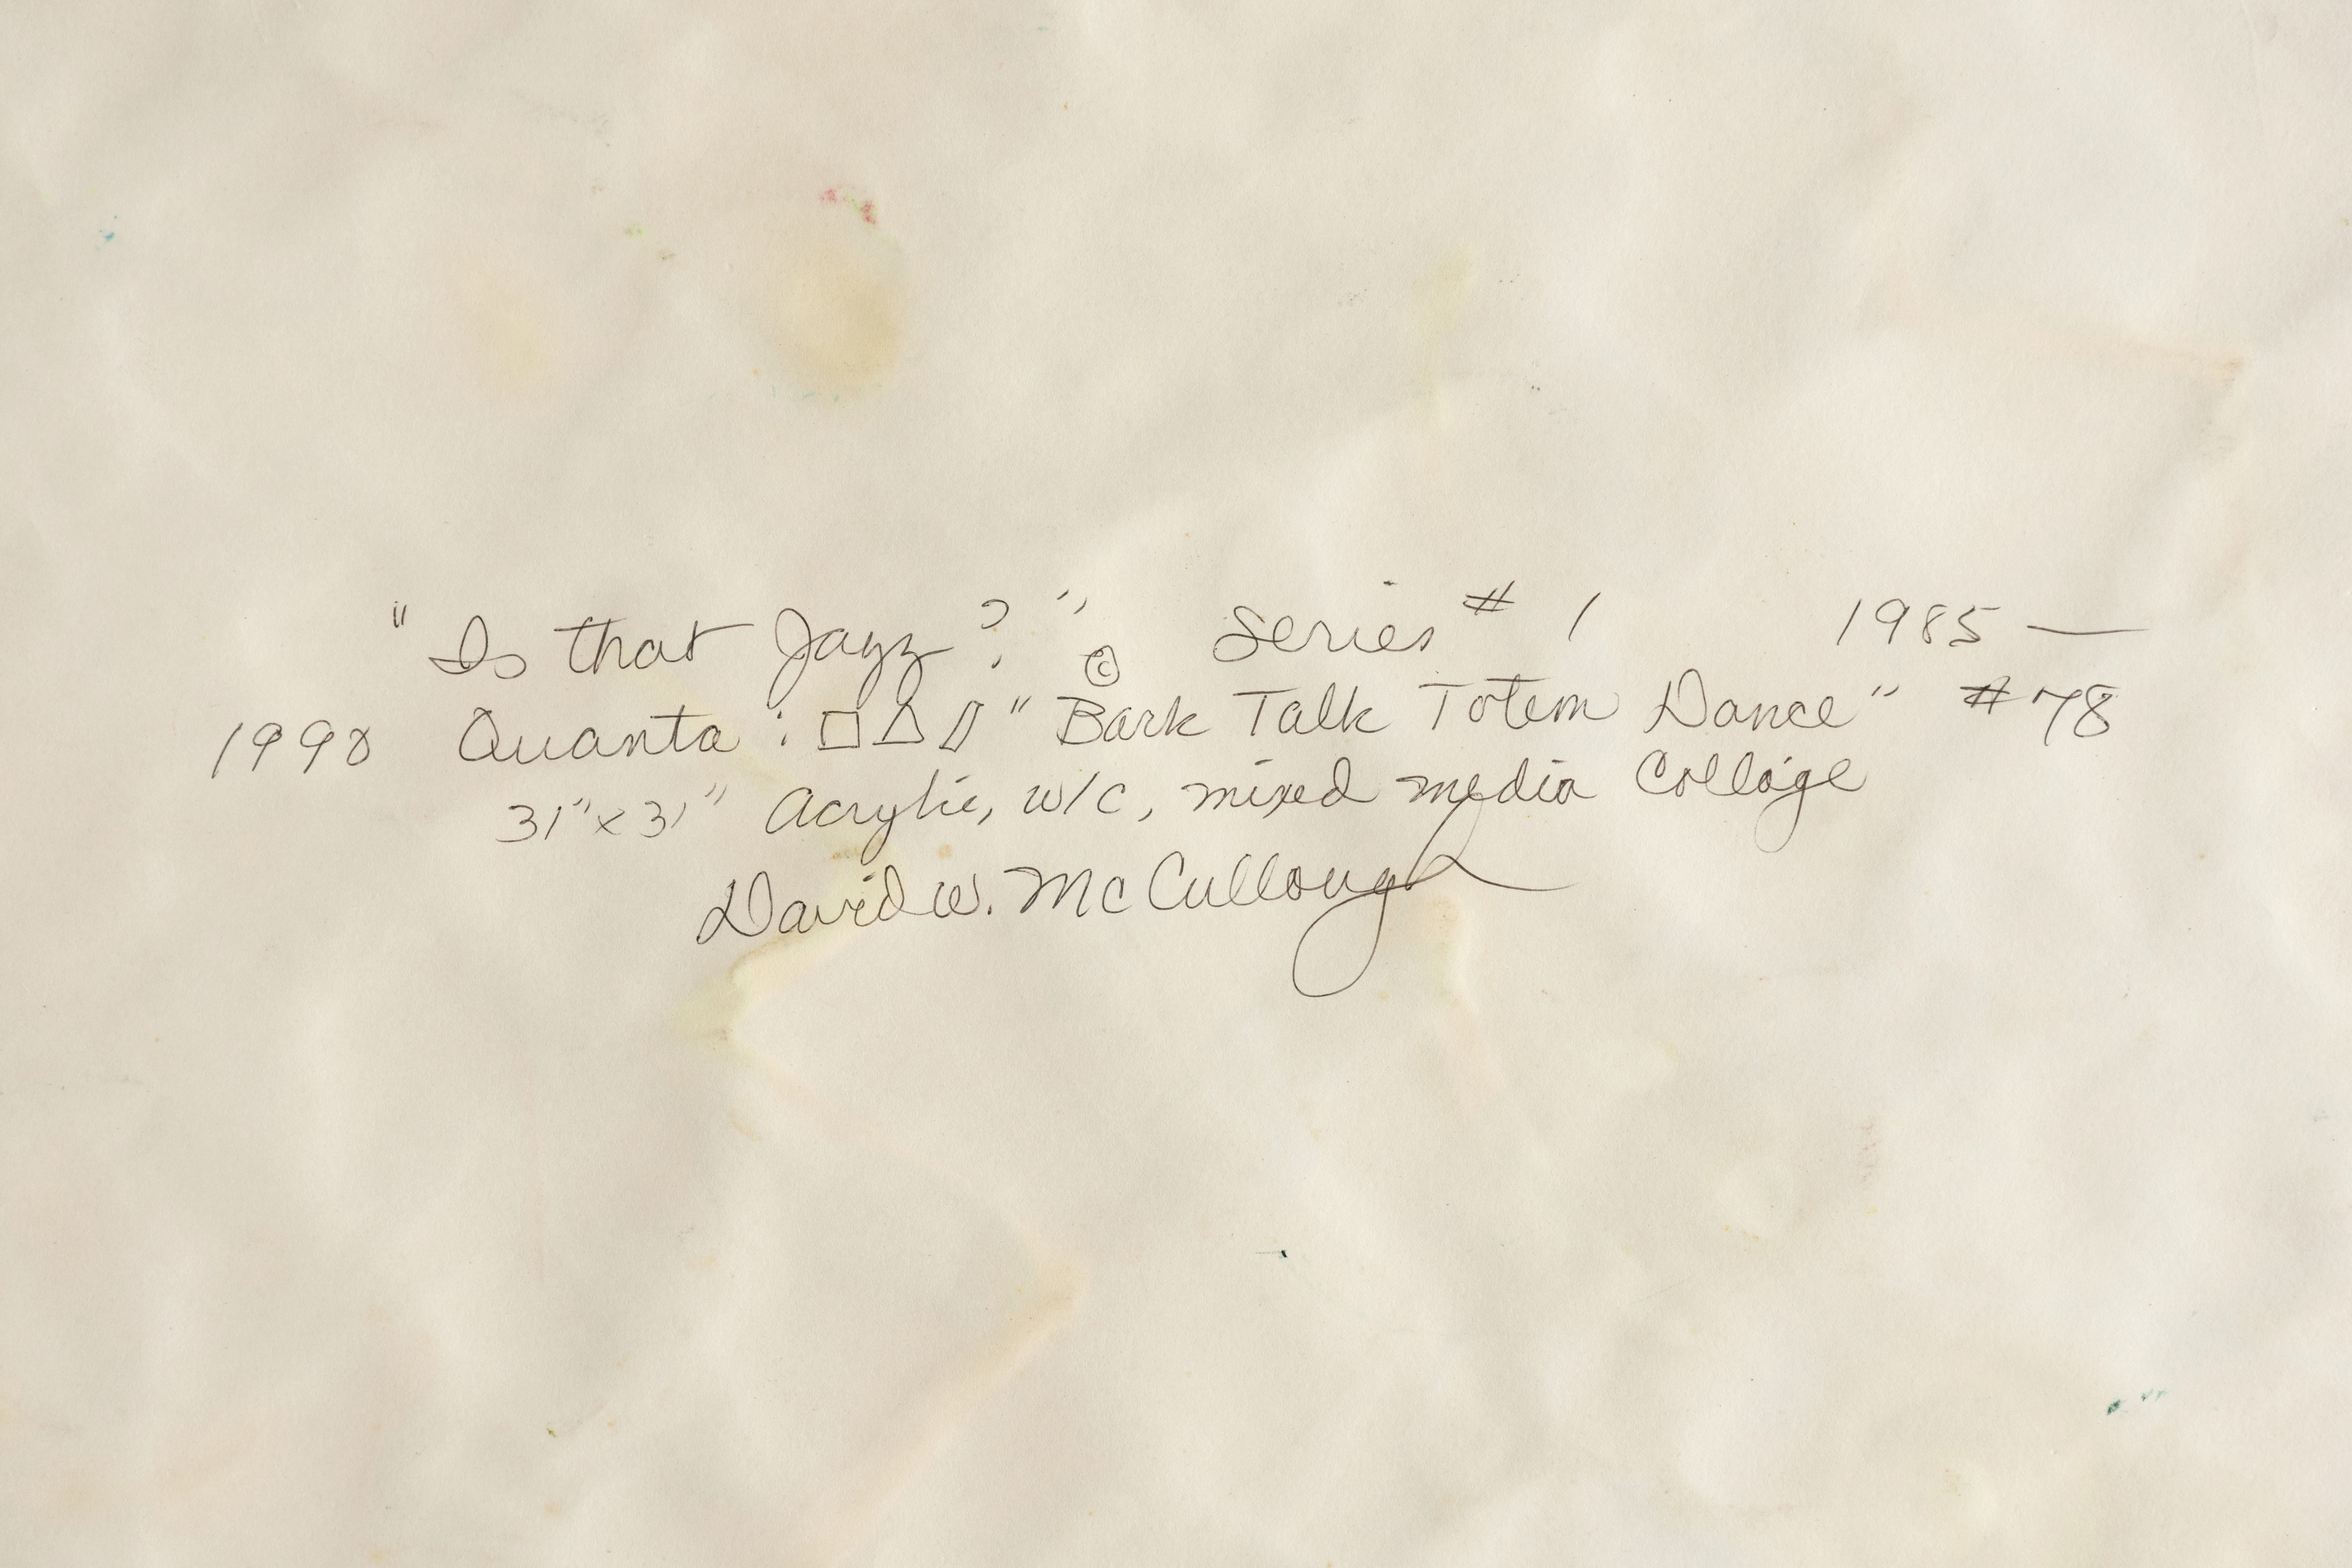 "Is that Jazz?" © Series # 1 1985 —
1990 Quanta : □△▱ "Bark Talk Totem Dance" #78
31" x 31" Acrylic, w/c, mixed media Collage
David W. McCullough